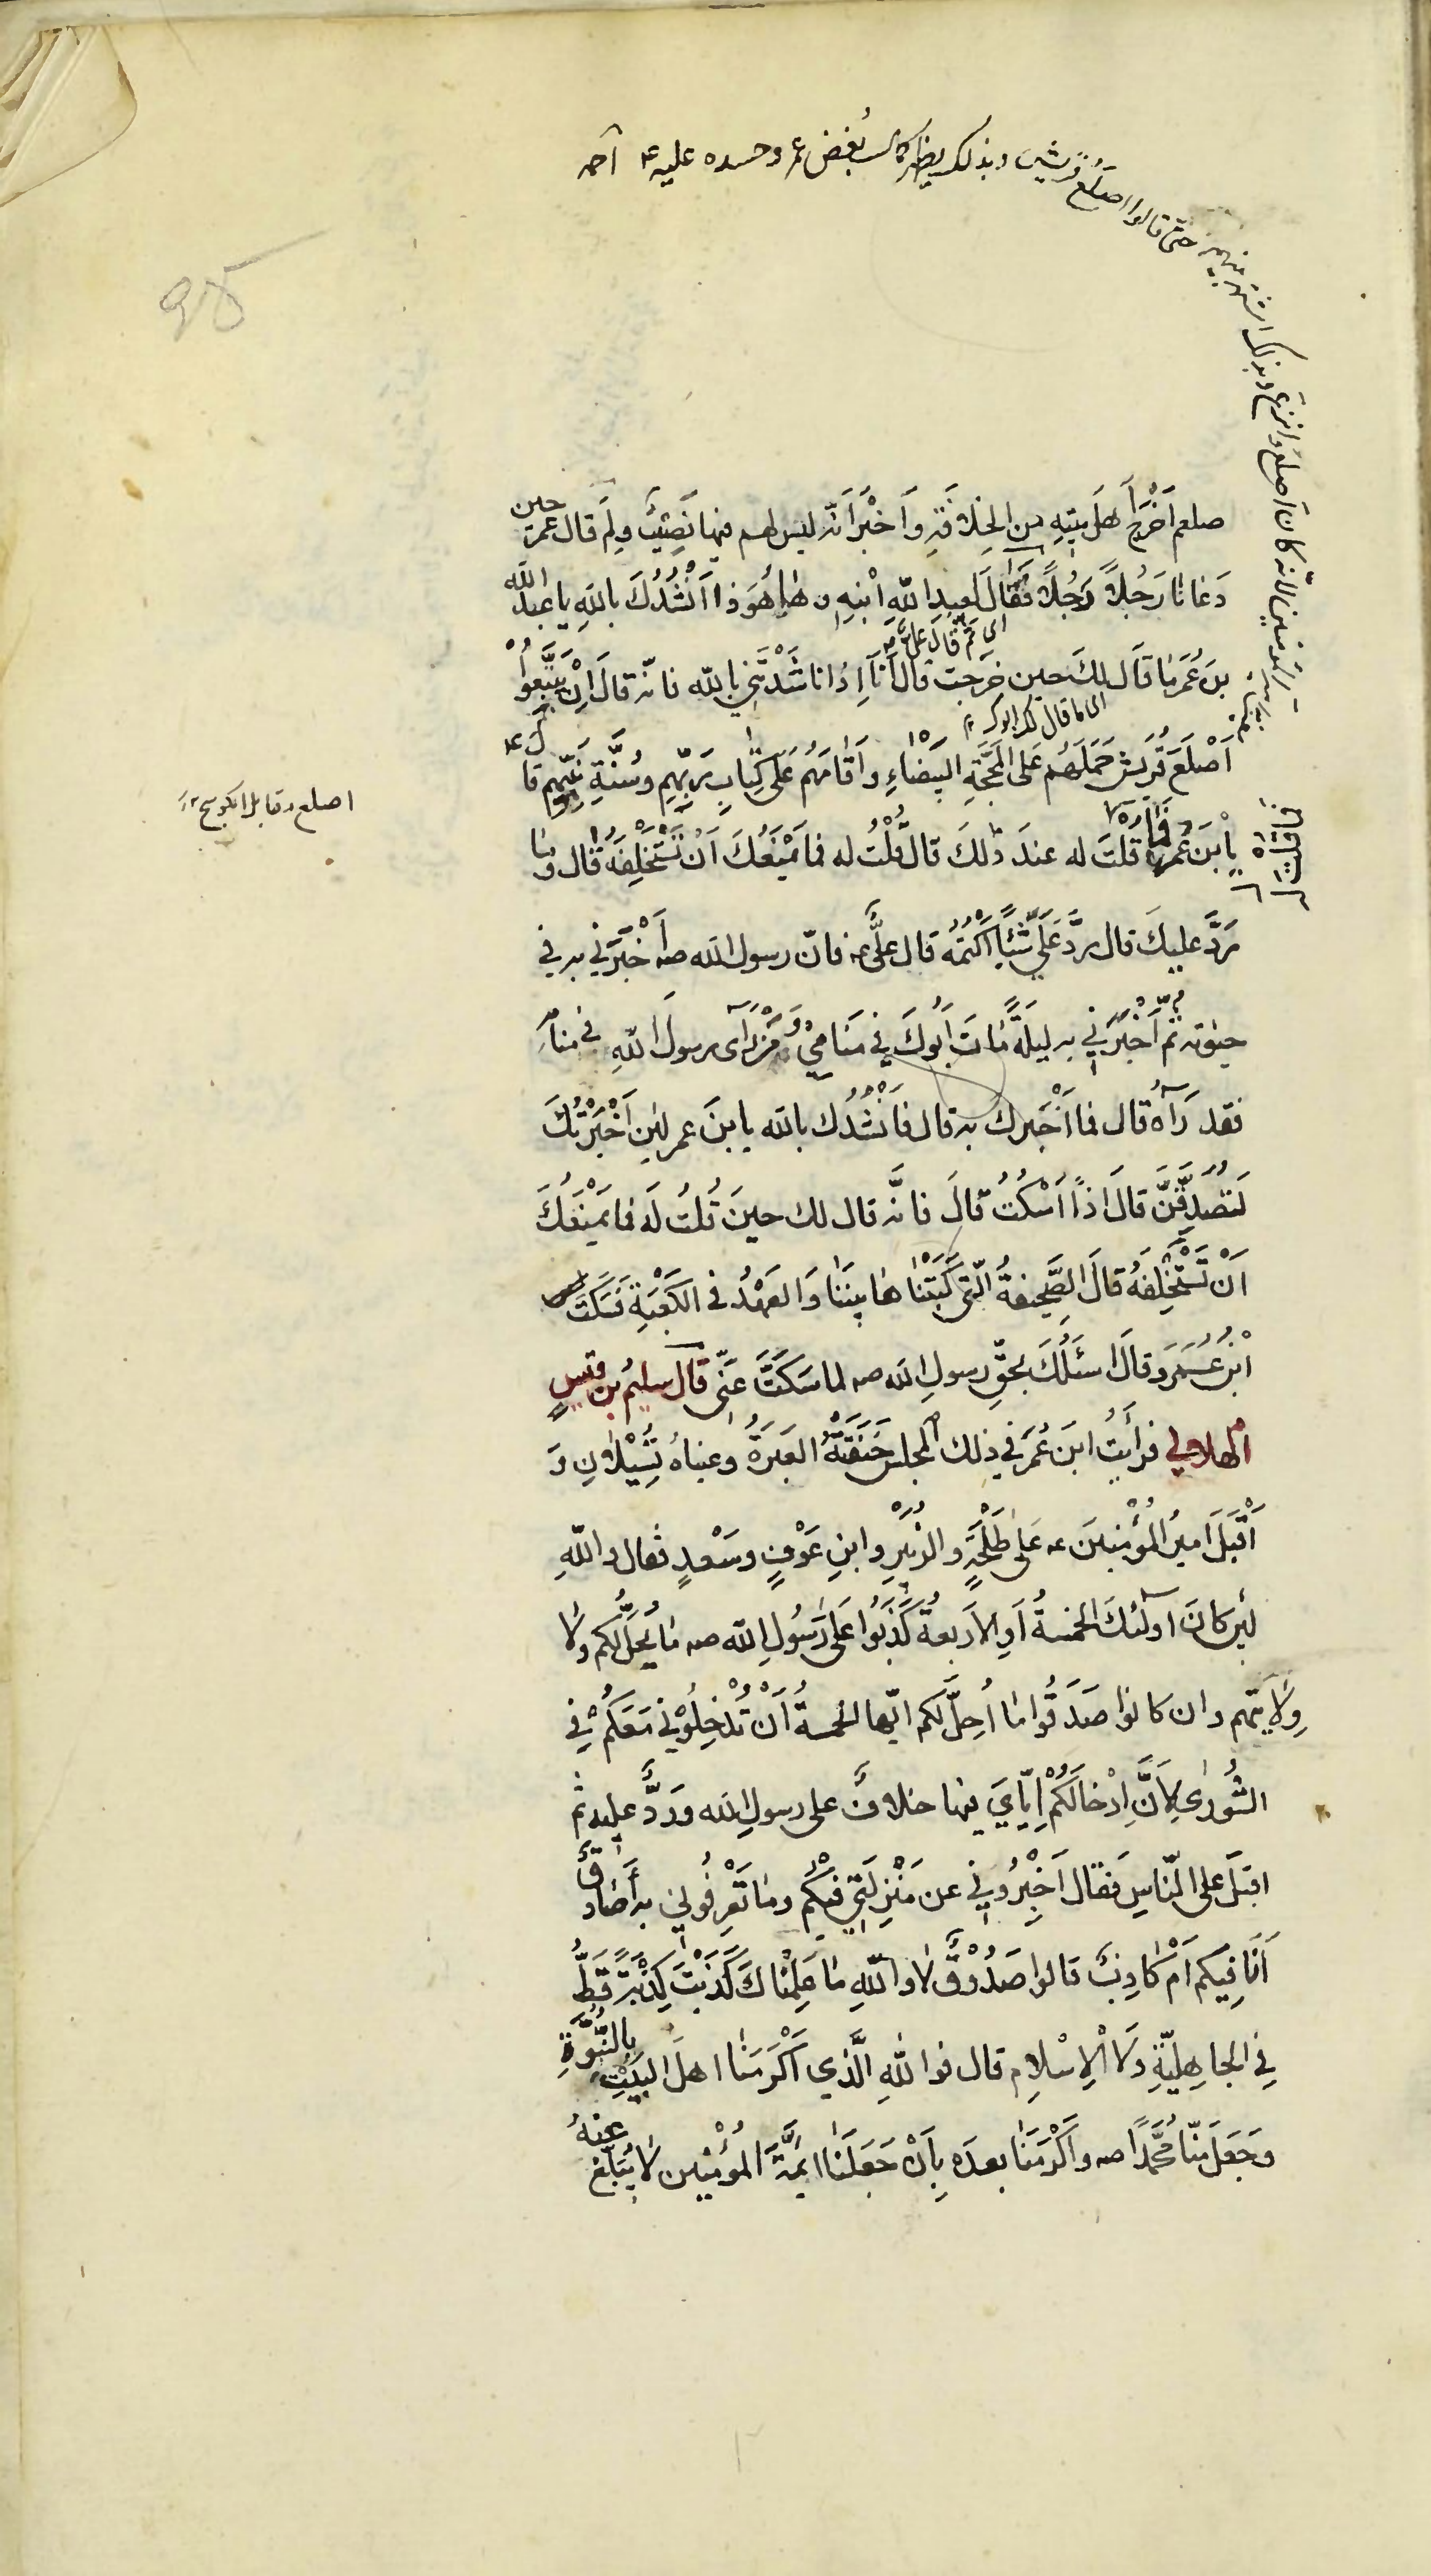 حتى قالوا اصلع قريش وبذلك يظهر كمال بغض عمر وحسده عليه ع
كان اصلع وانزع وبذلك اشتهر بينهم
صلعم اَخْرَجَ اَهلَ بيتِهِ من الخلافةِ وَاَخْبَرَ اَنّه ليس لهم فيها نَصِيْبٌ ولِمَ قال عمر حين
دَعَانا رَجُلاً رَجُلاً فَقالَ لعبدِ اللّهِ ابْنِهِ وها هُوَ ذا اَنْشُدُكَ باللهِ يا عبدَ اللّه
اى ثم قال على
بنَ عُمَرَ مٰا قٰالَ لكَ حين خرجتَ قال اَمّا اِذْ ناشَدْتَنِي بالله فانّه قال اِنْ يَتَّبِعُوْا
اَصْلَعَ قُرَيش حَمَلَهُم عَلى المَحَجَّةِ البَيْضٰاءِ وَاَقٰامَهُم عَلٰى كِتٰابِ رَبِّهِم وسُنَّةِ نبِيِّهِم قال ع
اصلع مقابل
يابْنَ عُمَر فَمٰا قلتَ له عندَ ذٰلكَ قال قُلْتُ له فما يَمْنَعُكَ اَنْ تَسْتَخْلِفَهُ قٰال وما
رَدَّ عليكَ قال ردَّ عَلَيَّ شَيْئًا اَكْتُمُهُ قال علىٌّ ع فانّ رسول الله صه اَخْبَرَني به في
حيوته ثمّ اَخْبَرَني به ليلةَ مٰاتَ اَبُوكَ في مَنَامِيْ وَمَنْ رَآى رسولَ اللهِ في منامِه
فقد رَآهُ قال فما اَخْبَرك به قال فَاَنْشُدُك بالله يا بنَ عمر لئِن اَخْبَرْتُكَ
لَتُصَدِّقَنَّ قالَ اذًا اَسْكُتُ قالَ فانَّه قال لك حينَ قُلتَ لَه فما يَمْنَعُكَ
اَنْ تَسْتَخْلِفَهُ قالَ الصَّحيفةُ الّتي كَتَبْنٰاها بينَنٰا وَالعَهْدُ في الكَعْبَةِ فَسَكَتَ
ابْنُ عُمَرَ وَقالَ اسئَلُكَ بحقِّ رسولِ الله صه لما سَكَتَّ عَنِّي قال سليمُ بن قيسٍ
الهلالي فرأيتُ ابنَ عُمَرَ في ذلك المجلس خَنَقَتْهُ العَبَرَةُ وعيناهُ تُسِيْلانِ وَ
اَقْبَلَ اَميرُ المُؤْمِنِينَ ع عَلى طَلْحَةَ والزُبَيْرِ وابنِ عَوْفٍ وسَعْدٍ فقال واللّهِ
لئن كانَ اولئكَ الخمسةُ اَوِ الاَربعةُ كَذَبُوا عَلى رَسُولِ الله صه مٰا يُحِلُّ لكم ولا
وِلايَتُهم وان كانوا صَدَقُوا مٰا اُحِلَّ لكم ايّها الخمسةُ اَنْ تُدْخِلُوْني مَعَكُمْ في
الشُورىٰ لِاَنَّ اِدْخالَكُمْ اِيّايَ فيها خلافٌ على رسولِ الله وَردٌّ عليه ثم
اقبَلَ على النّاسِ فَقال اَخْبِرُوْني عن مَنْزِلَتي فيْكُم ومٰا تَعْرِفُوني به اَصٰادقٌ
اَنَا فِيكم اَمْ كَاذِبٌ قالوا صَدُوْقٌ لا واللّهِ مٰا عَلِمْنٰاكَ كَذَبْتَ كِذْبَةً قَطُّ
فِي الجاهِلِيّةِ وَلا الْاِسْلامِ قال فواللهِ الَّذي اَكْرَمَنٰا اهلَ البَيْتِ بالنُبُوَّةِ
وجَعَلَ مِنّا مُحَمَّدًا صه واَكْرَمَنٰا بعدَه بِاَنْ جَعَلَنٰا ائِمَّةَ المُؤْمنين لا يُبَلِّغُ عنهُ